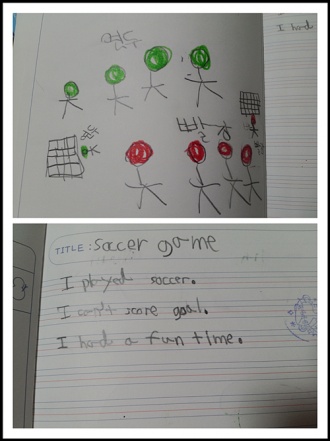 I had
TITLE: soccer game
I played soccer.
I can't score goal.
I had a fun time.